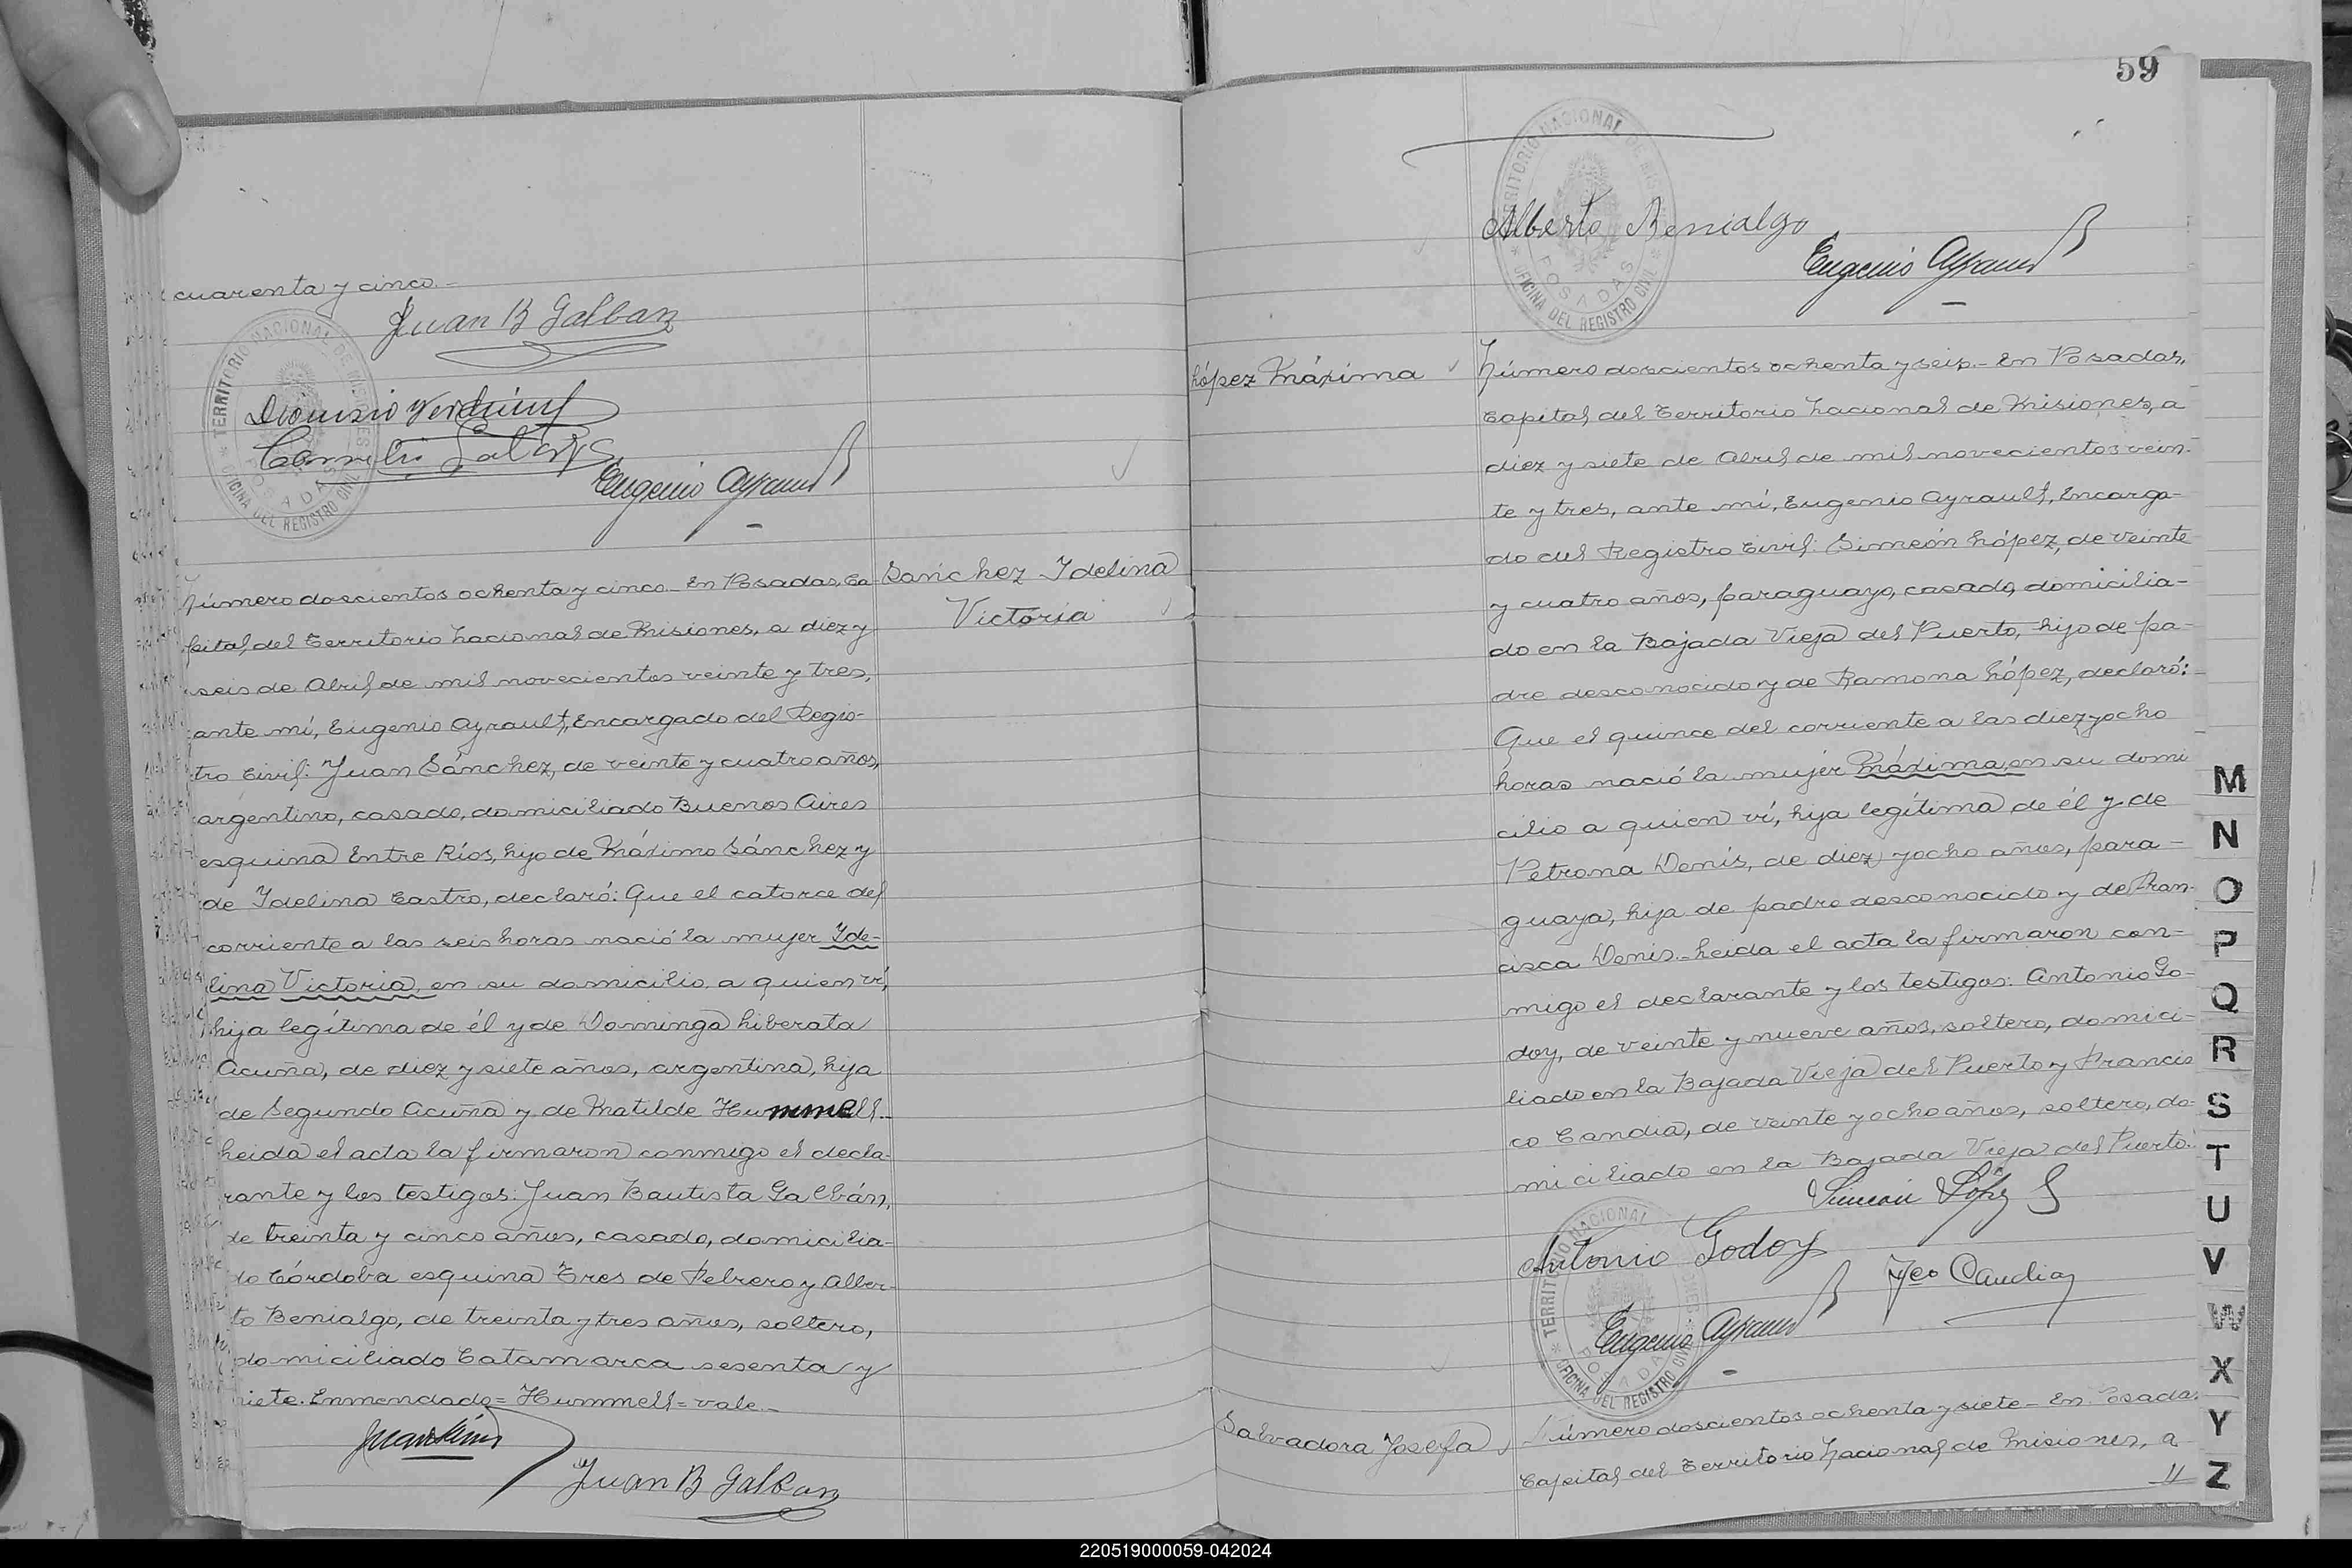 cuarenta y cinco.-
Juan B Galban
TERRITORIO NACIONAL DE MISIONES
POSADAS
* OFICINA DEL REGISTRO CIVIL *
Eugenio Ayrault
Número doscientos ochenta y cinco.- En Posadas, Ca-
pital del Territorio Nacional de Misiones, a diez y
seis de Abril de mil novecientos veinte y tres,
ante mí, Eugenio Ayrault, Encargado del Regis-
tro Civil: Juan Sánchez, de veinte y cuatro años,
argentino, casado, domiciliado Buenos Aires
esquina Entre Ríos, hijo de Máximo Sánchez y
de Idelina Castro, declaró: Que el catorce del
corriente a las seis horas nació la mujer Ide-
lina Victoria, en su domicilio a quien ví,
hija legítima de él y de Dominga Liberata
Acuña, de diez y siete años, argentina, hija
de Segundo Acuña y de Matilde Hummell.-
Leida el acta la firmaron conmigo el decla-
rante y los testigos: Juan Bautista Galbán,
de treinta y cinco años, casado, domicilia-
do Córdoba esquina Tres de Febrero y Alber-
to Benialgo, de treinta y tres años, soltero,
domiciliado Catamarca sesenta y
siete. Enmendado = Hummell = vale.-
Juan B Galban
Sanchez Idelina
Victoria
59
TERRITORIO NACIONAL DE MISIONES
POSADAS
* OFICINA DEL REGISTRO CIVIL *
Alberto Benialgo
Eugenio Ayrault
López Máxima
Número doscientos ochenta y seis.- En Posadas,
Capital del Territorio Nacional de Misiones, a
diez y siete de Abril de mil novecientos vein-
te y tres, ante mí, Eugenio Ayrault, Encarga-
do del Registro Civil: Simeón López, de veinte
y cuatro años, paraguayo, casado, domicilia-
do en la Bajada Vieja del Puerto, hijo de pa-
dre desconocido y de Ramona López, declaró:
Que el quince del corriente a las diez y ocho
horas nació la mujer Máxima, en su domi
cilio a quien ví, hija legítima de él y de
Petrona Denis, de diez y ocho años, para-
guaya, hija de padre desconocido y de Fran-
cisca Denis.- Leida el acta la firmaron con-
migo el declarante y los testigos: Antonio Go-
doy, de veinte y nueve años, soltero, domici-
liado en la Bajada Vieja del Puerto y Francis
co Candia, de veinte y ocho años, soltero, do-
miciliado en la Bajada Vieja del Puerto.
Simeón López
Antonio Godoy
Fco Candia
TERRITORIO NACIONAL DE MISIONES
POSADAS
* OFICINA DEL REGISTRO CIVIL *
Eugenio Ayrault
Salvadora Josefa
Número doscientos ochenta y siete - En Posadas
Capital del Territorio Nacional de Misiones, a
//
M
N
O
P
Q
R
S
T
U
V
W
X
Y
Z
220519000059-042024